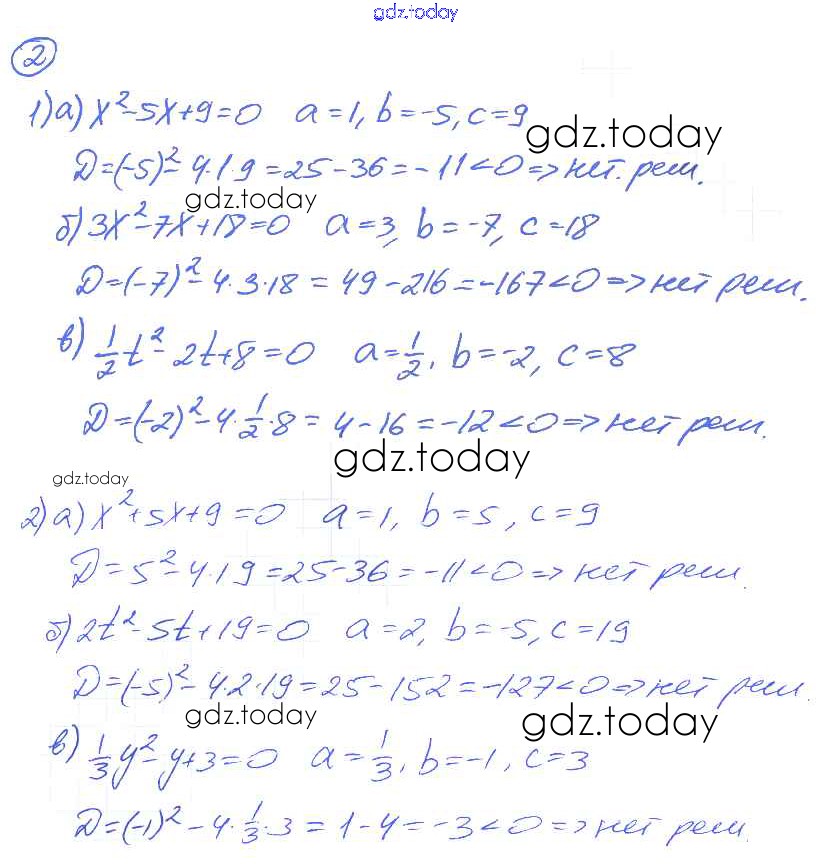 gdz.today
2
1) а) x²-5x+9=0 a=1, b=-5, c=9
gdz.today
D=(-5)²-4·1·9=25-36=-11<0=>нет. реш.
gdz.today
б) 3x²-7x+18=0 a=3, b=-7, c=18
D=(-7)²-4·3·18=49-216=-167<0=>нет реш.
в) 1/2t²-2t+8=0 a=1/2, b=-2, c=8
D=(-2)²-4·1/2·8=4-16=-12<0=>нет реш.
gdz.today
gdz.today
2) а) x²+5x+9=0 a=1, b=5, c=9
D=5²-4·1·9=25-36=-11<0=>нет реш.
б) 2t²-5t+19=0 a=2, b=-5, c=19
D=(-5)²-4·2·19=25-152=-127<0=>нет реш.
gdz.today
gdz.today
в) 1/3y²-y+3=0 a=1/3, b=-1, c=3
D=(-1)²-4·1/3·3=1-4=-3<0=>нет реш.